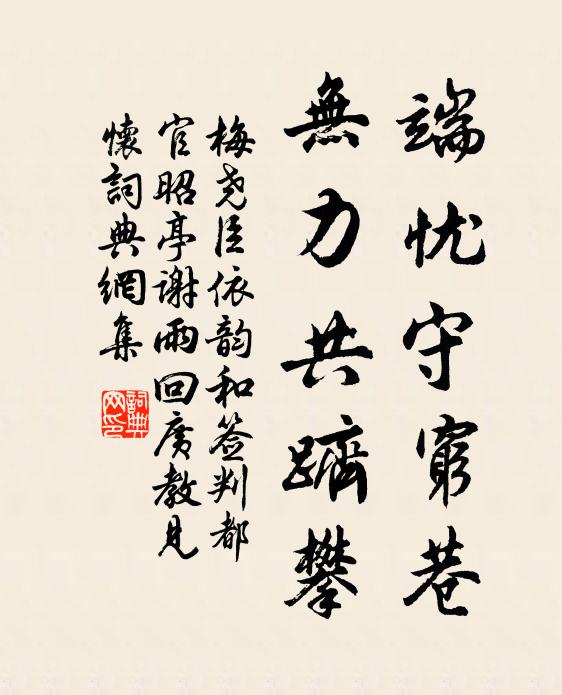 端忧守窮巷
無力共躋攀
梅尧臣依韵和签判都
官昭亭谢雨回廣教見
懷詞典網集
詞典
网印